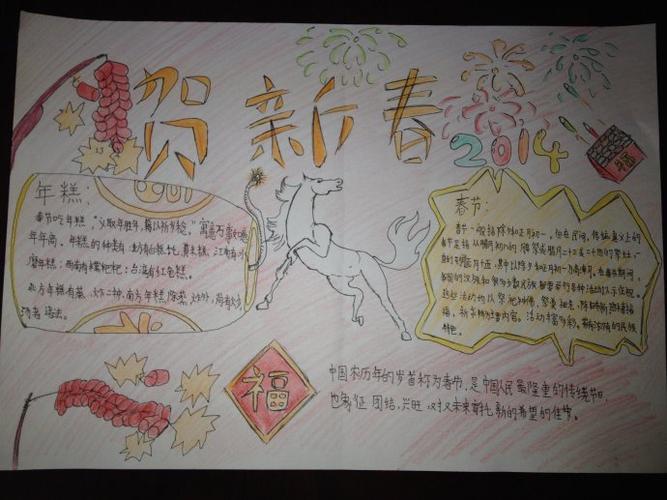 贺新春
2014
福
年糕：
春节吃年糕，“义取年胜年，藉以祈岁稔。”寓意万事如意
年年高。年糕的种类有：北方有白糕饦、黄米糕；江南有水
磨年糕；西南有糯粑粑；台湾有红龟糕。
北方年糕有蒸、炸二种，南方年糕除蒸、炸外，尚有
汤煮诸法。
春节：
春节一般指除夕和正月初一。但在民间，传统意义上的
春节是指从腊月初八的腊祭或腊月二十三或二十四的祭灶，
一直到正月十五，其中以除夕和正月初一为高潮。在春节期间，
我国的汉族和很多少数民族都要举行各种活动以示庆祝。
这些活动均以祭祀神佛、祭奠祖先、除旧布新、迎禧接
福、祈求丰年为主要内容。活动丰富多彩，带有浓郁的民族
特色。
福
中国农历年的岁首称为春节，是中国人民最隆重的传统节日，
也象征团结、兴旺，对未来寄托新的希望的佳节。